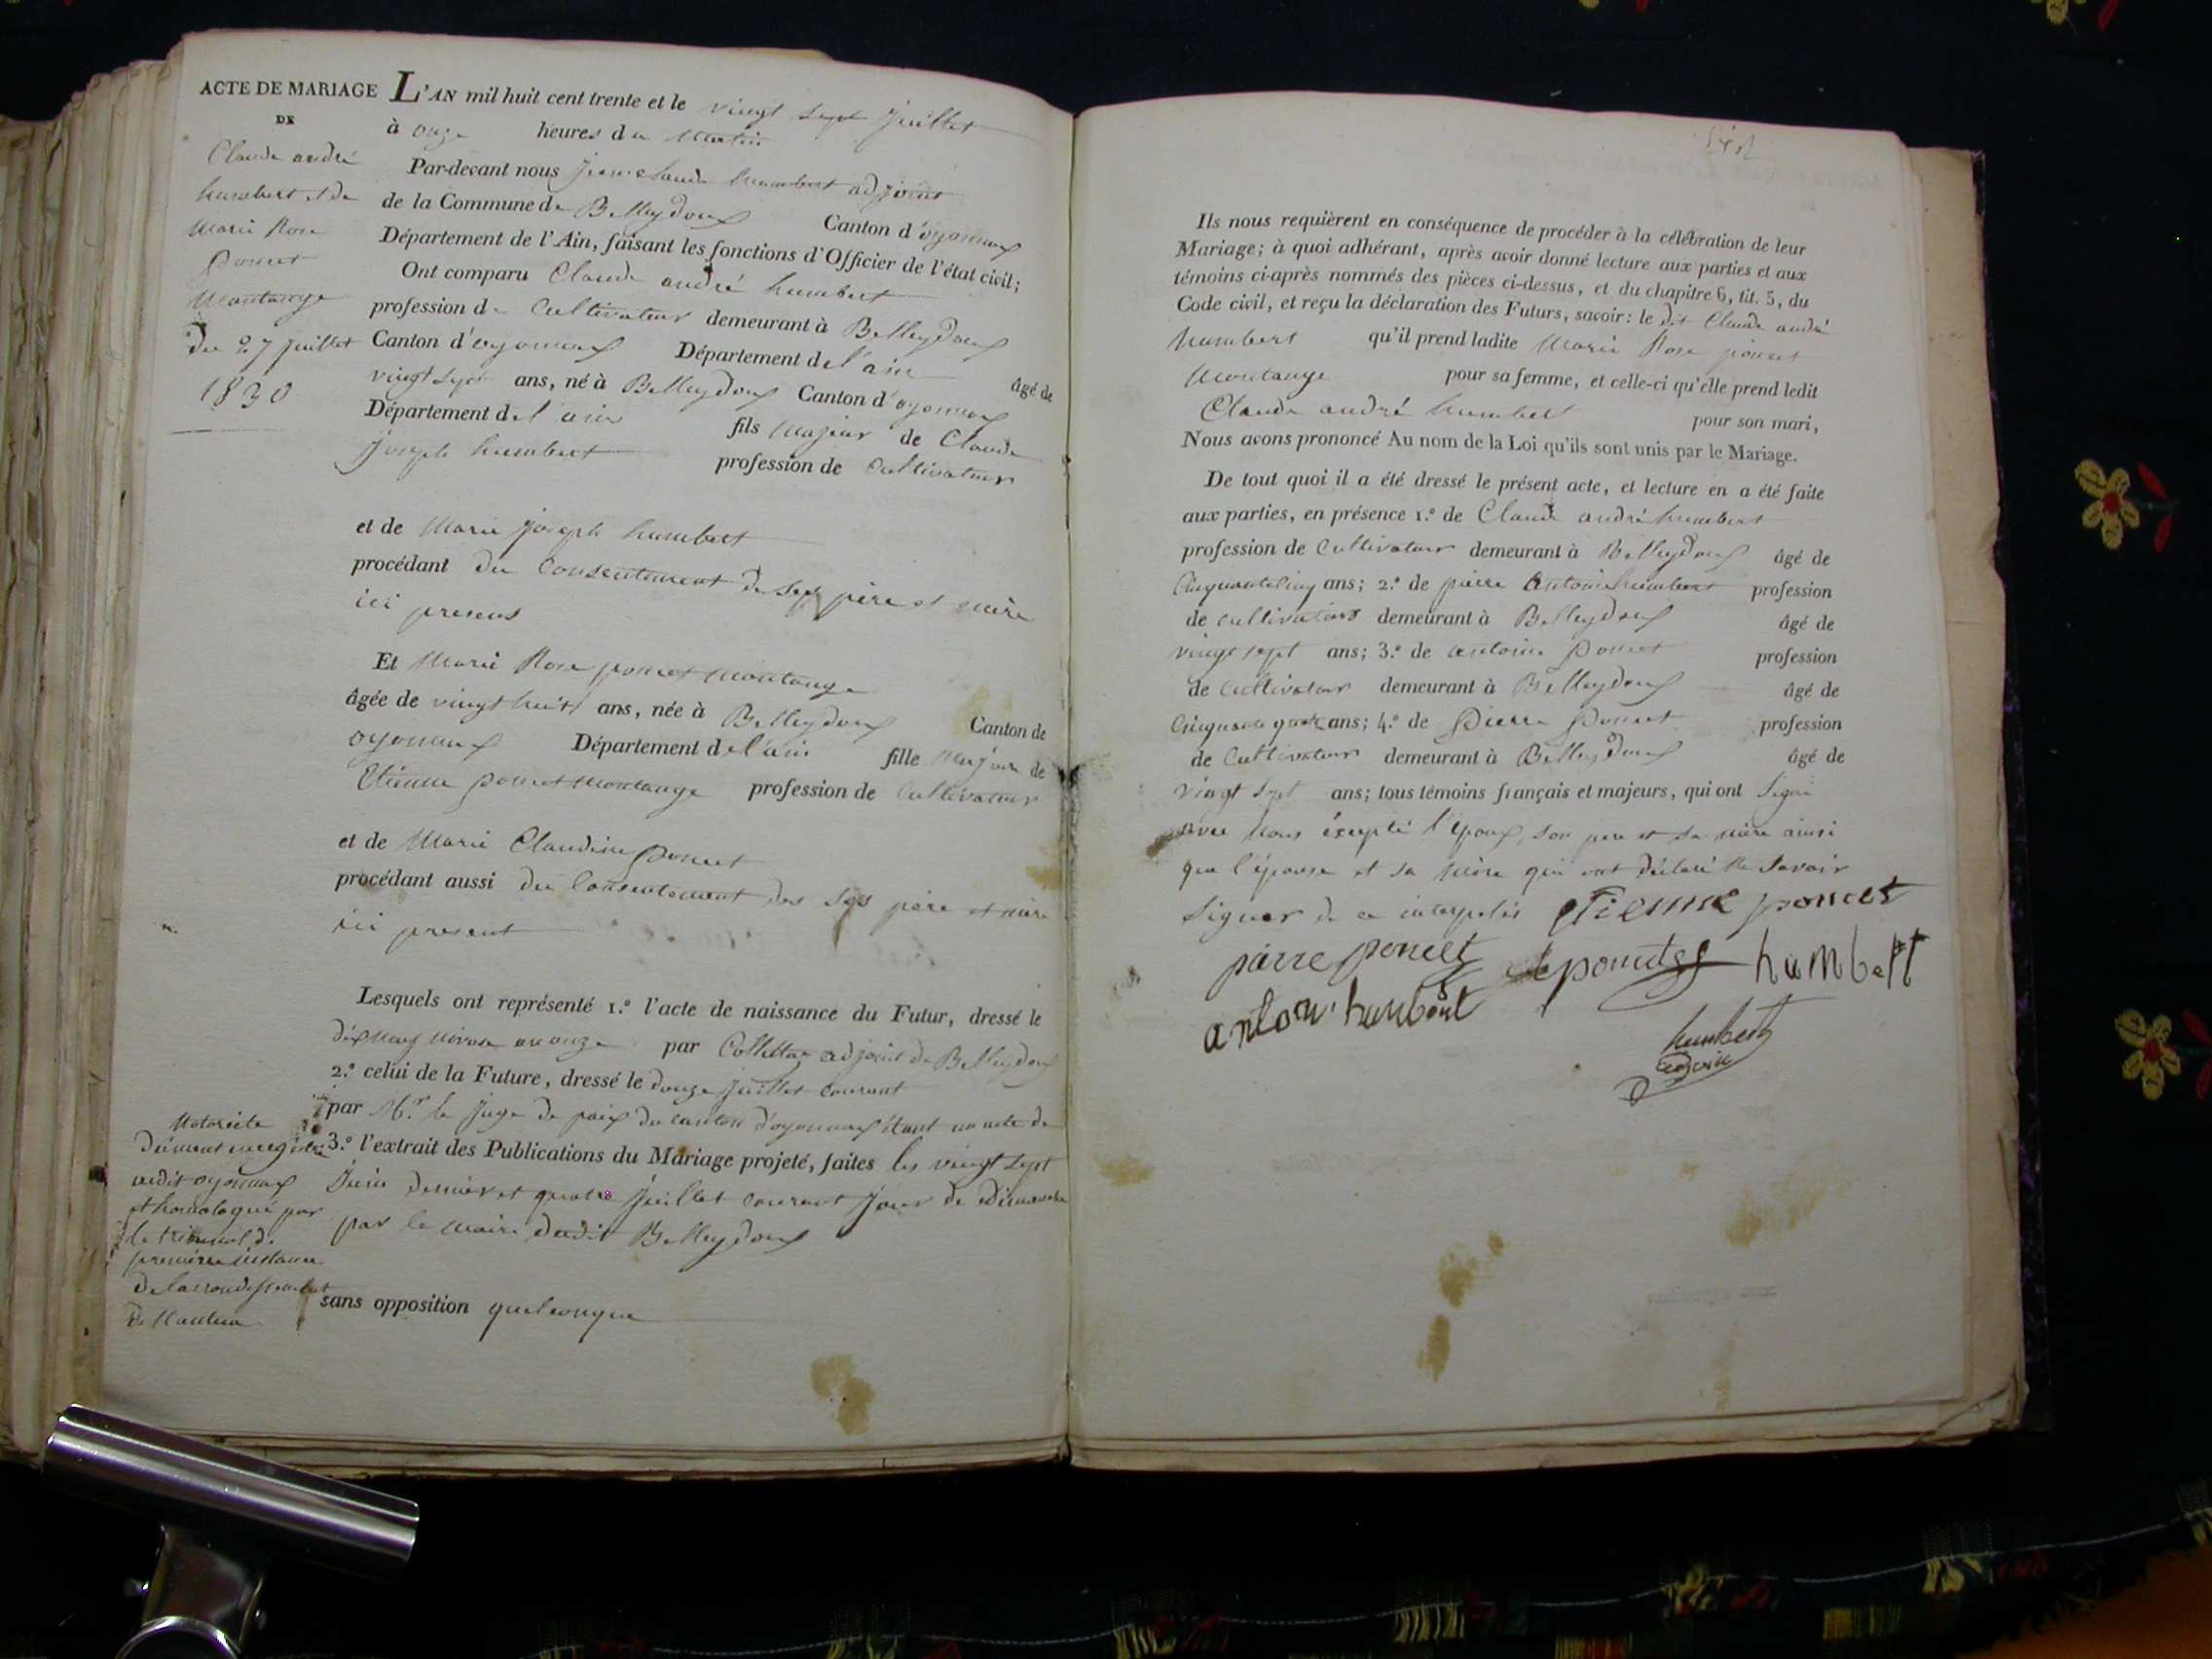 ACTE DE MARIAGE
DE
Claude andré
humbert et de
Marie Rose
Poncet
Montange
du 27 juillet
1830
L'AN mil huit cent trente et le vingt sept juillet
à onze heures du Matin
Par-devant nous jean claude humbert adjoint
de la Commune de Belleydoux Canton d'oyonnax
Département de l'Ain, faisant les fonctions d'Officier de l'état civil;
Ont comparu Claude andré humbert
profession de Cultivateur demeurant à Belleydoux
Canton d'oyonnax Département de l'ain âgé de
vingt sept ans, né à Belleydoux Canton d'oyonnax
Département de l'ain fils Majeur de Claude
joseph humbert profession de Cultivateur
et de Marie joseph humbert
procédant du Consentement de ses père et mère
ici presens
Et Marie Rose poncet Montange
âgée de vingt huit ans, née à Belleydoux Canton de
oyonnax Département de l'ain fille Majeure de
Etienne poncet Montange profession de Cultivateur
et de Marie Claudine Poncet
procédant aussi du Consentement des ses père et mère
ici present
Lesquels ont représenté 1.º l'acte de naissance du Futur, dressé le
dix neuf nivose an onze par Collettaz adjoint de Belleydoux
2.º celui de la Future, dressé le douze juillet courant
par Mr. le juge de paix du canton d'oyonnax étant un acte de
Notoriété
dument enregistré
audit oyonnax
et homologué par
le tribunal de
première instance
de l'arrondissement
de Nantua
3.º l'extrait des Publications du Mariage projeté, faites les vingt sept
Juin dernier et quatre juillet courant jour de Dimanche
par le maire dudit Belleydoux
sans opposition quelconque
Ils nous requièrent en conséquence de procéder à la célébration de leur
Mariage; à quoi adhérant, après avoir donné lecture aux parties et aux
témoins ci-après nommés des pièces ci-dessus, et du chapitre 6, tit. 5, du
Code civil, et reçu la déclaration des Futurs, savoir: le dit Claude andré
humbert qu'il prend ladite Marie Rose poncet
Montange pour sa femme, et celle-ci qu'elle prend ledit
Claude andré humbert pour son mari,
Nous avons prononcé Au nom de la Loi qu'ils sont unis par le Mariage.
De tout quoi il a été dressé le présent acte, et lecture en a été faite
aux parties, en présence 1.º de Claude andré humbert
profession de Cultivateur demeurant à Belleydoux âgé de
Cinquante cinq ans; 2.º de pierre Antoine humbert profession
de cultivateur demeurant à Belleydoux âgé de
vingt sept ans; 3.º de antoine Poncet profession
de Cultivateur demeurant à Belleydoux âgé de
Cinquante quatre ans; 4.º de Pierre Poncet profession
de Cultivateur demeurant à Belleydoux âgé de
vingt sept ans; tous témoins français et majeurs, qui ont signé
avec nous éxcepté l'époux, son pere et sa mère ainsi
que l'épouse et sa mère qui ont déclaré ne savoir
signer de ce interpelés etienne poncet
pierre poncet humbert
humbert
adjoint